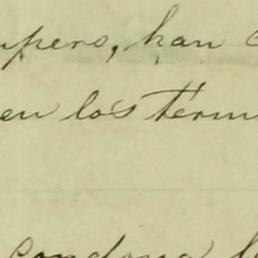 upero, han
en los term
condona l